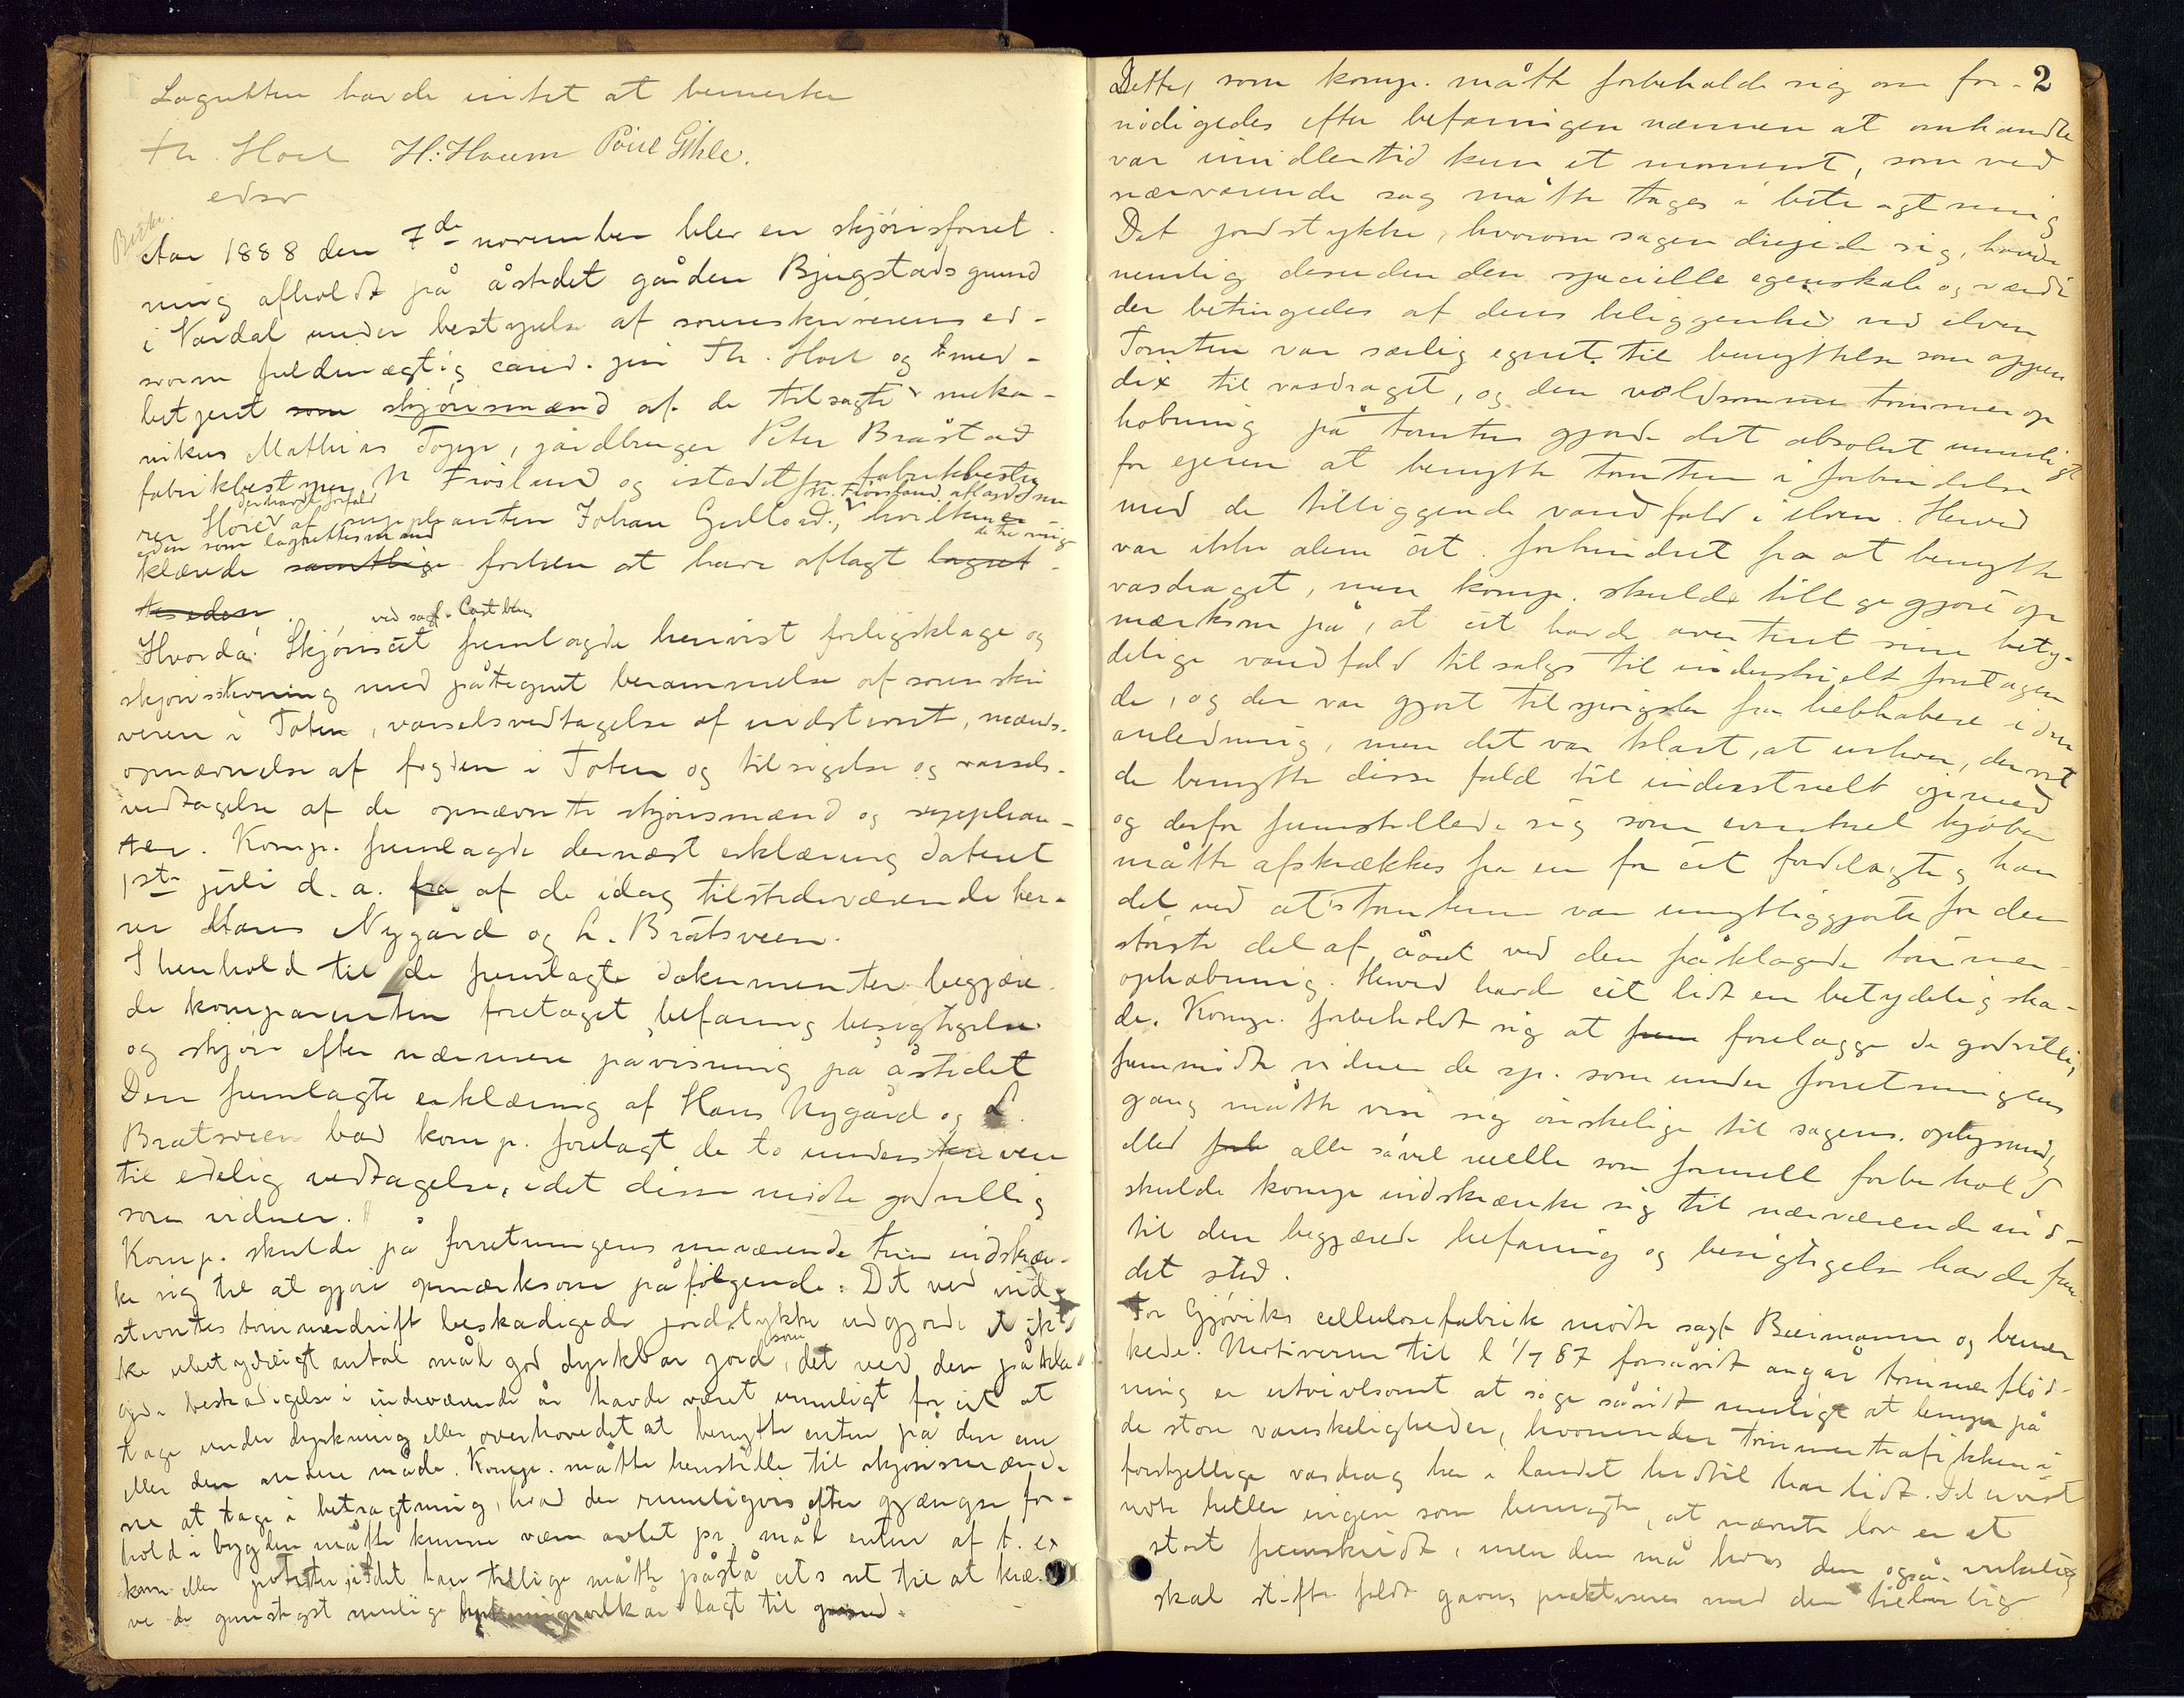 Lagretten havde intet at bemerke
Th. Hoel H: Houm Povel Gihle.
edsv
Aar 1888 den 7de november blev en skjønsforret-
ning afholdt på åstedet gården Bjugstadsgrund
i Vardal under bestyrelse af sorenskriverens ed-
svorne fuldmægtig cand. jur Th. Hoel og med-
betjent som skjønsmænd af de tilsagte meka-
nikus Mathias Topp, gårdbruger Peter Bråstad
fabrikbestyrer N Frøsland og istedetfor fabrikbesty
der havde forfald N. Frøsland aflagde nu
rer Hoie af suppleanten Johan Gulload, hvilken
eden som lagrettesmand de tre øvrige
klærede samtlige forhen at have aflagt lagret-
teseden.
ved sagf. Castberg
Hvorda: Skjønscit fremlagde henvist forligsklage og
skjønsstevning med påtegnet berammelse af sorenskri
veren i Toten, varselsvedtagelse af indstevnt, mænds-
opnævnelse af fogden i Toten og tilsigelse og varsels-
vedtagelse af de opnævnte skjønsmænd og supplean-
ter. Komp. fremlagde dernæst erklæring dateret
1ste juli d. a. fra af de idag tilstedeværende her-
rer Hans Nygård og L. Bråtsveen.
I henhold til de fremlagte dokumenter begjære-
de komparenten foretaget befaring besigtigelse
og skjøn efter nærmere påvisning på åstedet
Den fremlagte erklæring af Hans Nygård og L.
Bratsveen bad komp. forelagt de to underskrivere
til edelig vedtagelse, idet disse mødte godvillig
som vidner.
Komp. skulde på forretningens nuværende trin indskræn-
ke sig til at gjøre opmærksom på følgende: Det ved ind-
stevntes tømmerdrift beskadigede jordstykke udgjorde et ik-
ke ubetydeligt antal mål god dyrkbar jord, som det ved den påkla-
gede beskadigelse i indeværende år havde været umuligt for cit at
tage under dyrkning eller overhovedet at benytte enten på den ene
eller den anden måde. Komp. måtte henstille til skjønsmænde-
ne at tage i betragtning, hvad der rimeligvis efter gjængse for-
hold i bygden måtte kunne være avlet pr. mål enten af t. ex
korn eller poteter, idet han tillige måtte påstå cits ret til at kræ-
ve de gunstigst mulige dyrkningsvilkår lagt til grund.
2
Dette, som komp. måtte forbeholde sig om for-
nødigedes efter befaringen nærmere at omhandle
var imidlertid kun et moment, som ved
nærværende sag måtte tages i betragtning
Det jordstykke, hvorom sagen dreiede sig, havde
nemlig desuden den specielle egenskab og værdi
der betingedes af dens beliggenhed ved elven
Tomten var særlig egnet til benyttelse som appen
dix til vasdraget, og den voldsomme tømmerop
hobning på tomten gjorde det absolut umuligt
for eieren at benytte tomten i forbindelse
med de tilliggende vandfald i elven. Herved
var ikke alene cit. forhindret fra at benytte
vasdraget, men komp. skulde tillige gjøre op
mærksom på, at cit havde averteret sine bety-
delige vandfald tilsalgs til industrielt foretagen
de, og der var gjort tilspørgsler fra liebhabere i den
anledning, men det var klart, at enhver, der vil
de benytte disse fald til industrielt øiemed
og derfor fremstillede sig som eventuel kjøber
måtte afskrækkes fra en for cit fordelagtig han
del ved at tomten var unyttiggjorte for den
største del af året ved den påklagede tømmer-
ophobning. Herved havde cit lidt en betydelig ska-
de. Komp. forbeholdt sig at frem forelægge de godvillig
fremmødte vidner de sp. som under forretningens
gang måtte vise sig ønskelige til sagens oplysning
Med forb alle såvel reelle som formell forbehold
skulde komp indskrænke sig til nærværende ind-
til den begjærede befaring og besigtigelse havde fun
det sted.
For Gjøviks cellulosefabrik mødte sagf. Beirmann og bemær
kede. Motiverne til l 1/7 87 forsåvidt angår tømmerflød-
ning er utvivlsomt at søge såvidt muligt at lempe på
de store vanskeligheder, hvorunder tømmertrafikken i
forskjellige vasdrag her i landet hidtil har lidt. Det er vist
nok heller ingen som benegter, at nævnte lov er et
stort fremskridt, men den må hvis den også virkelig
skal stifte fuldt gavn, praktiseres med den tilbørlige